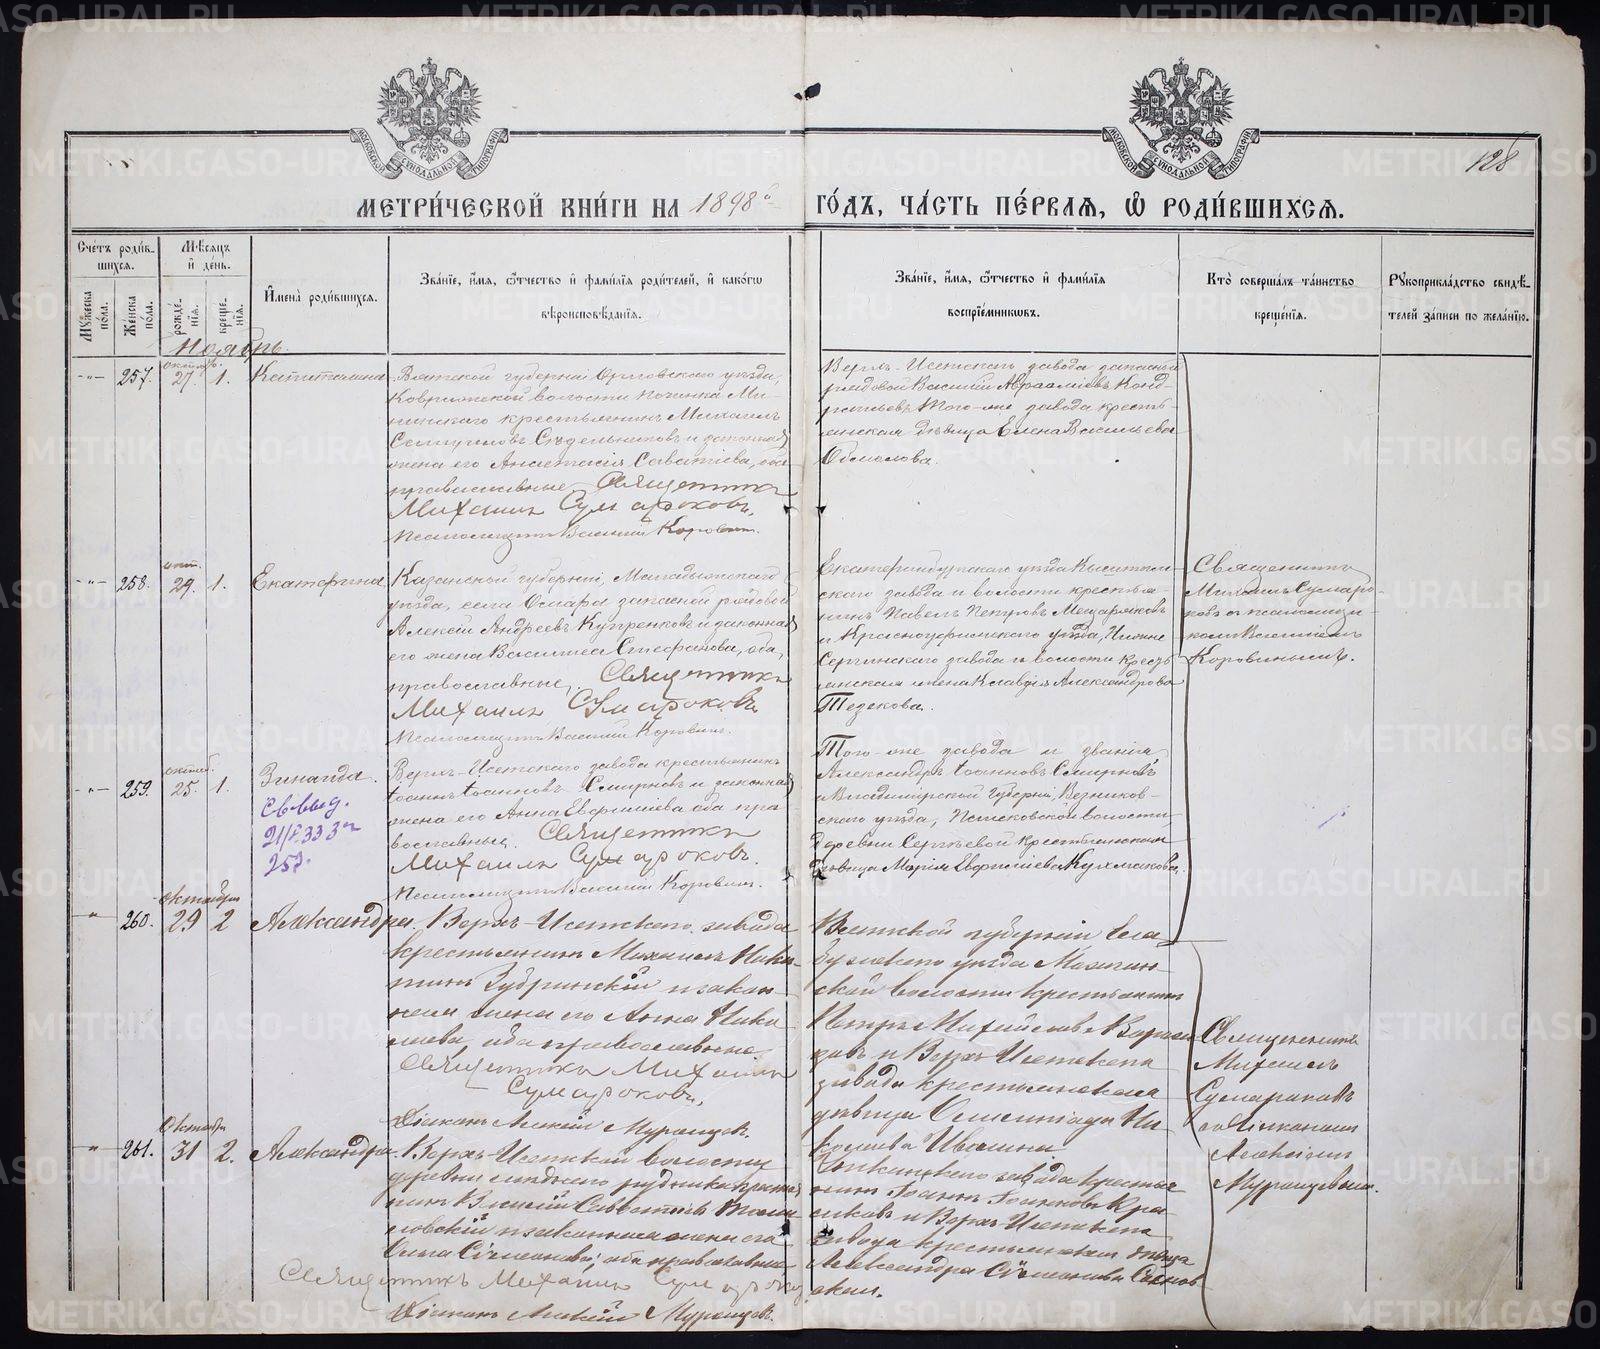 128
МЕТРИ́ЧЕСКОЙ КНИ́ГИ НА 1898й ГО́ДЪ, ЧА́СТЬ ПЕ́РВАѦ, Ѡ҆ РОДИ́ВШИХСѦ.
Сче́тъ роди́вшихсѧ.
Мꙋ́жеска по́ла.
Же́нска по́ла.
Мѣ́сѧцъ и҆ де́нь.
рожде́нїѧ.
креще́нїѧ.
И҆мена̀ роди́вшихсѧ.
Зва́нїе, и҆́мѧ, ѻ҆́тчество и҆ фами́лїѧ роди́телей, и҆ како́гѡ
вѣроисповѣ́данїѧ.
Зва́нїе, и҆́мѧ, ѻ҆́тчество и҆ фами́лїѧ
воспрїе́мникѡвъ.
Кто̀ соверша́лъ та́инство
креще́нїѧ.
Рꙋкоприкла́дство свидѣ́телей за́писи по жела́нїю.
Ноябрь
257. октяб. 27. 1. Капиталина
Вятской губерніи Орловскаго уѣзда,
волости починка
крестьянинъ Михаилъ
и законная
жена его Анастасія Саватіева, оба
православные. Священникъ
Михаилъ Сумароковъ.
Псаломщикъ Василій Коровинъ.
Верхъ-Исетскаго завода запасный
рядовой Василій Аврааміевъ Конд-
ратьевъ Того-же завода кресть-
янская дѣвица Елена Васильева
258. окт. 29. 1. Екатерина
Казанской губерніи, Мамадышскаго
уѣзда, села Омара запасной рядовой
Алексій Андреевъ Купренковъ и законная
его жена Василиса Стефанова, оба
православные. Священникъ
Михаилъ Сумароковъ
Псаломщикъ Василій Коровинъ.
Екатеринбургскаго уѣзда Кыштым-
скаго завода и волости крестья-
нинъ Павелъ Петровъ Мещеряковъ
и Красноуфимскаго уѣзда, Нижне
Сергинскаго завода и волости кресть-
янская жена Клавдія Александрова
Священникъ
Михаилъ Сумаро-
ковъ съ псаломщи-
комъ Василіемъ
Коровинымъ.
259. октяб. 25. 1. Зинаида.
Св-выд.
21/I 33 г.
257.
Верхъ-Исетскаго завода крестьянинъ
Іоаннъ Іоанновъ Смирновъ и законная
жена его Анна Евфиміева оба пра
вославные. Священникъ
Михаилъ Сумароковъ.
Псаломщикъ Василій Коровинъ.
Того-же завода и званія
Александръ Іоанновъ Смирновъ
и Владимірской Губерніи, Вязников-
скаго уѣзда, волости,
деревни Сергѣевой крестьянская
дѣвица Марія Евфиміева
260. Октября 29 2 Александра.
Верхъ-Исетскаго завода
крестьянинъ Михаилъ Ники-
тинъ Зубринскій и закон-
ная жена его Анна Нико-
лаева, оба православные
Священникъ Михаилъ
Сумароковъ.
Діаконъ Алексій Мурашевъ.
Вятской губерніи Ела-
бужскаго уѣзда Можгин-
ской волости крестьянинъ
Петръ
и Верхъ-Исетскаго
завода крестьянская
дѣвица Ни-
колаева Ивашина
Священникъ
Михаилъ
Сумароковъ
съ діакономъ
Алексіемъ
Мурашевымъ.
261. Октября 31 2. Александра.
Верхъ-Исетской волости
деревни рудника крестья
нинъ Василій Савватіевъ
и законная жена его
Ольга Сѵмеонова, оба православные
Священникъ Михаилъ Сумароковъ
Діаконъ Алексій Мурашевъ.
завода крестья
нинъ Іоаннъ Іоанновъ Кра
и Верхъ-Исетскаго
завода крестьянская дѣвица
Александра Сѵмеонова